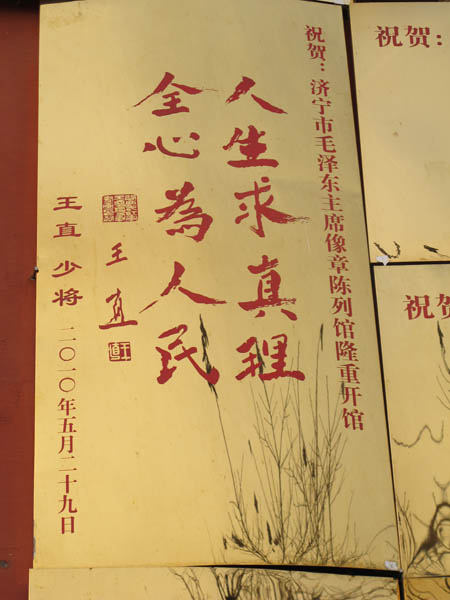 祝贺：济宁市毛泽东主席像章陈列馆隆重开馆
人生求真理
全心為人民
王直
王直少将
二〇一〇年五月二十九日
祝贺：
祝贺